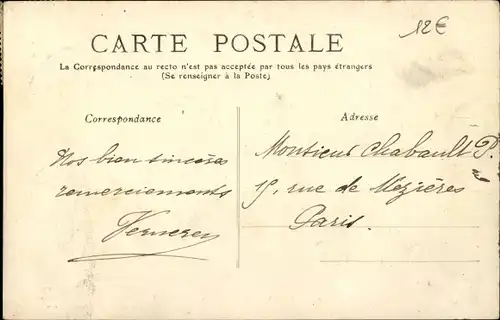 12€
CARTE POSTALE
La Correspondance au recto n'est pas acceptée par tous les pays étrangers
(Se renseigner à la Poste)
Correspondance
Adresse
Nos bien sincères
remerciements
Monsieur Chabault P.
15, rue de Mézières
Paris.